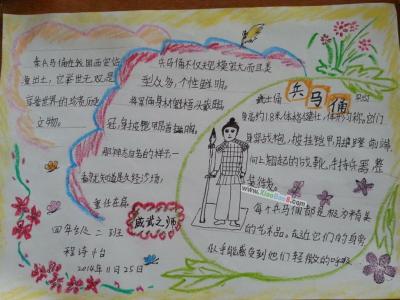 秦兵马俑在我国西安临
潼出土,它举世无双是
享誉世界的珍贵历史
文物。
兵马俑不仅规模宏大而且类
型众多,个性鲜明。
将军俑身材魁梧头戴鹖
冠,身披铠甲
那神态自若的样子一
看就知道是久经沙场,
重任在肩
威武之师
四年级二班
2014年11月25日
兵马俑
武士俑
身高约1.8米,体格健壮,体形匀称,它们
身穿战袍,披挂铠甲,脚蹬前端
向上翘起的战靴,手持兵器,整
装待发。
每个兵马俑都是极为精美
的艺术品。在近它们的身旁
似乎能感受到他们轻微的呼吸
www.XiaoBao8.com